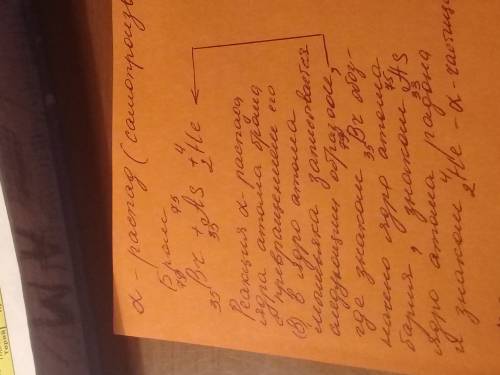 α - распад (самопроизв
Бром
⁷⁹₃₅Br → ⁷⁵₃₃As + ⁴₂He
Реакция α распад
ядра атома брома
(в) превращением его
в ядро атома
мышьяка записывается
следующим образом,
где знаком ⁷⁹₃₅Br обоз-
начено ядро атома
бария, знаком ⁷⁵₃₃As
ядро атома радона
и знаком ⁴₂He - α-частица